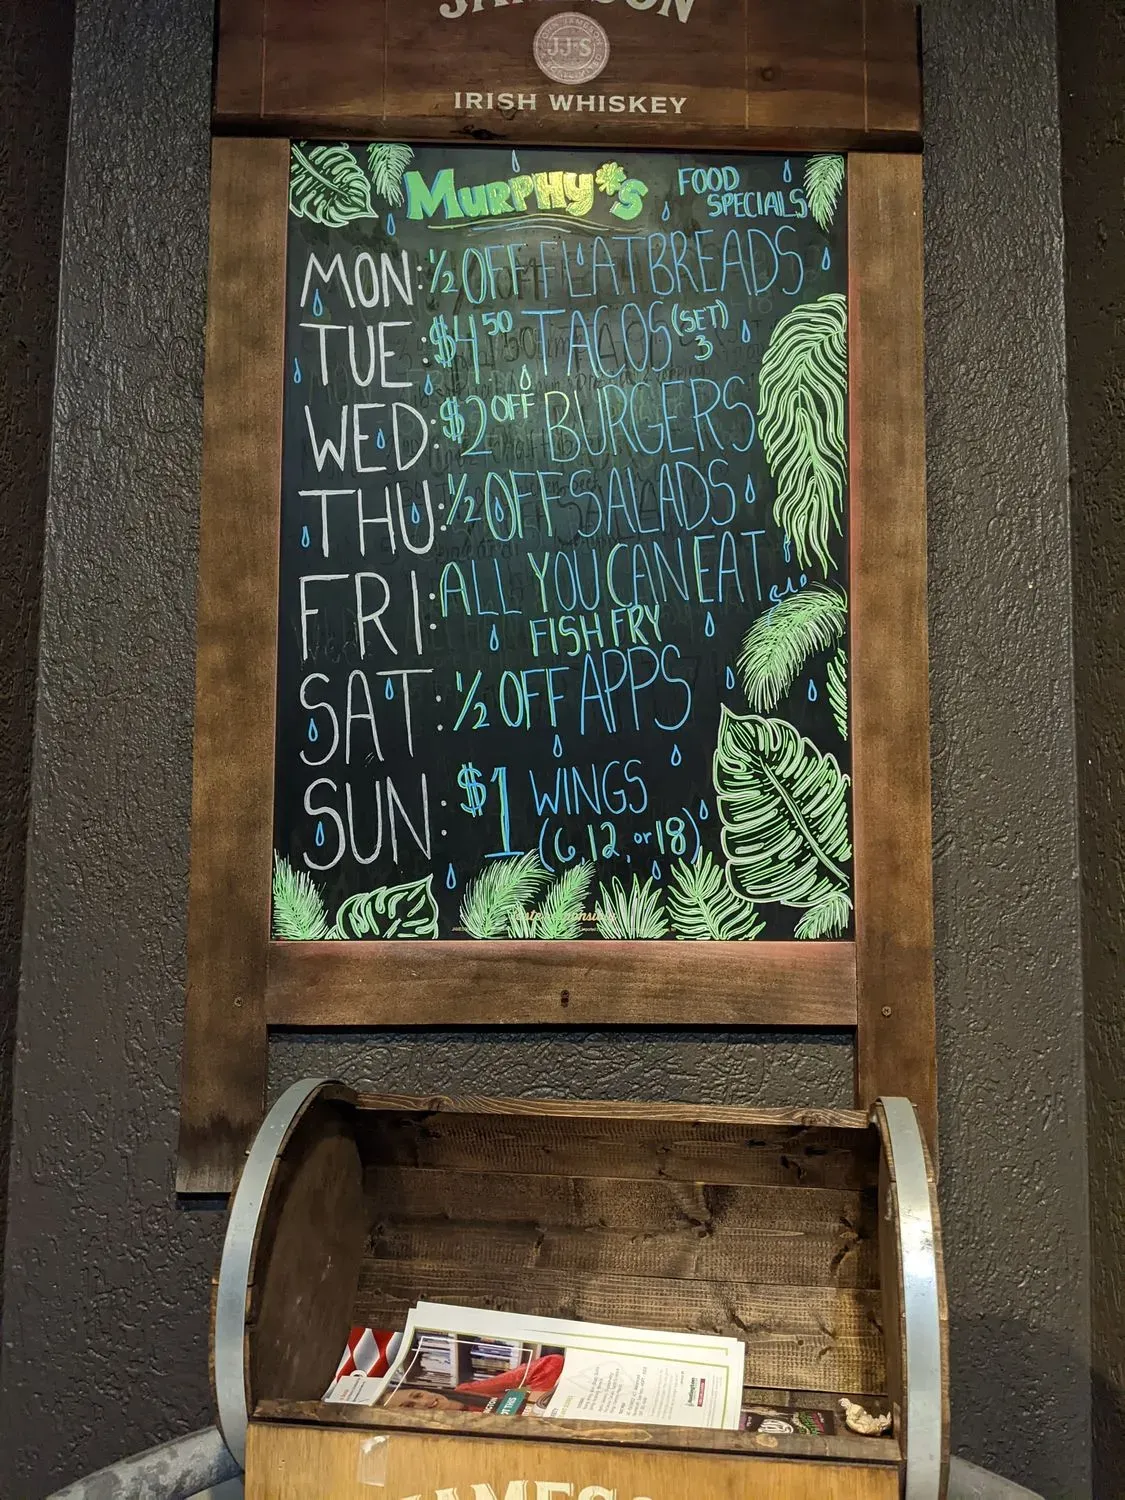 JAMESON
JJ&S
IRISH WHISKEY
MURPHY'S
FOOD
SPECIALS
MON: ½ OFF FLATBREADS
TUE: $4⁵⁰ TACOS (SET)
3
WED: $2 OFF BURGERS
THU: ½ OFF SALADS
FRI: ALL YOU CAN EAT
FISH FRY
SAT: ½ OFF APPS
SUN: $1 WINGS
(6, 12, or 18)
JAMESO